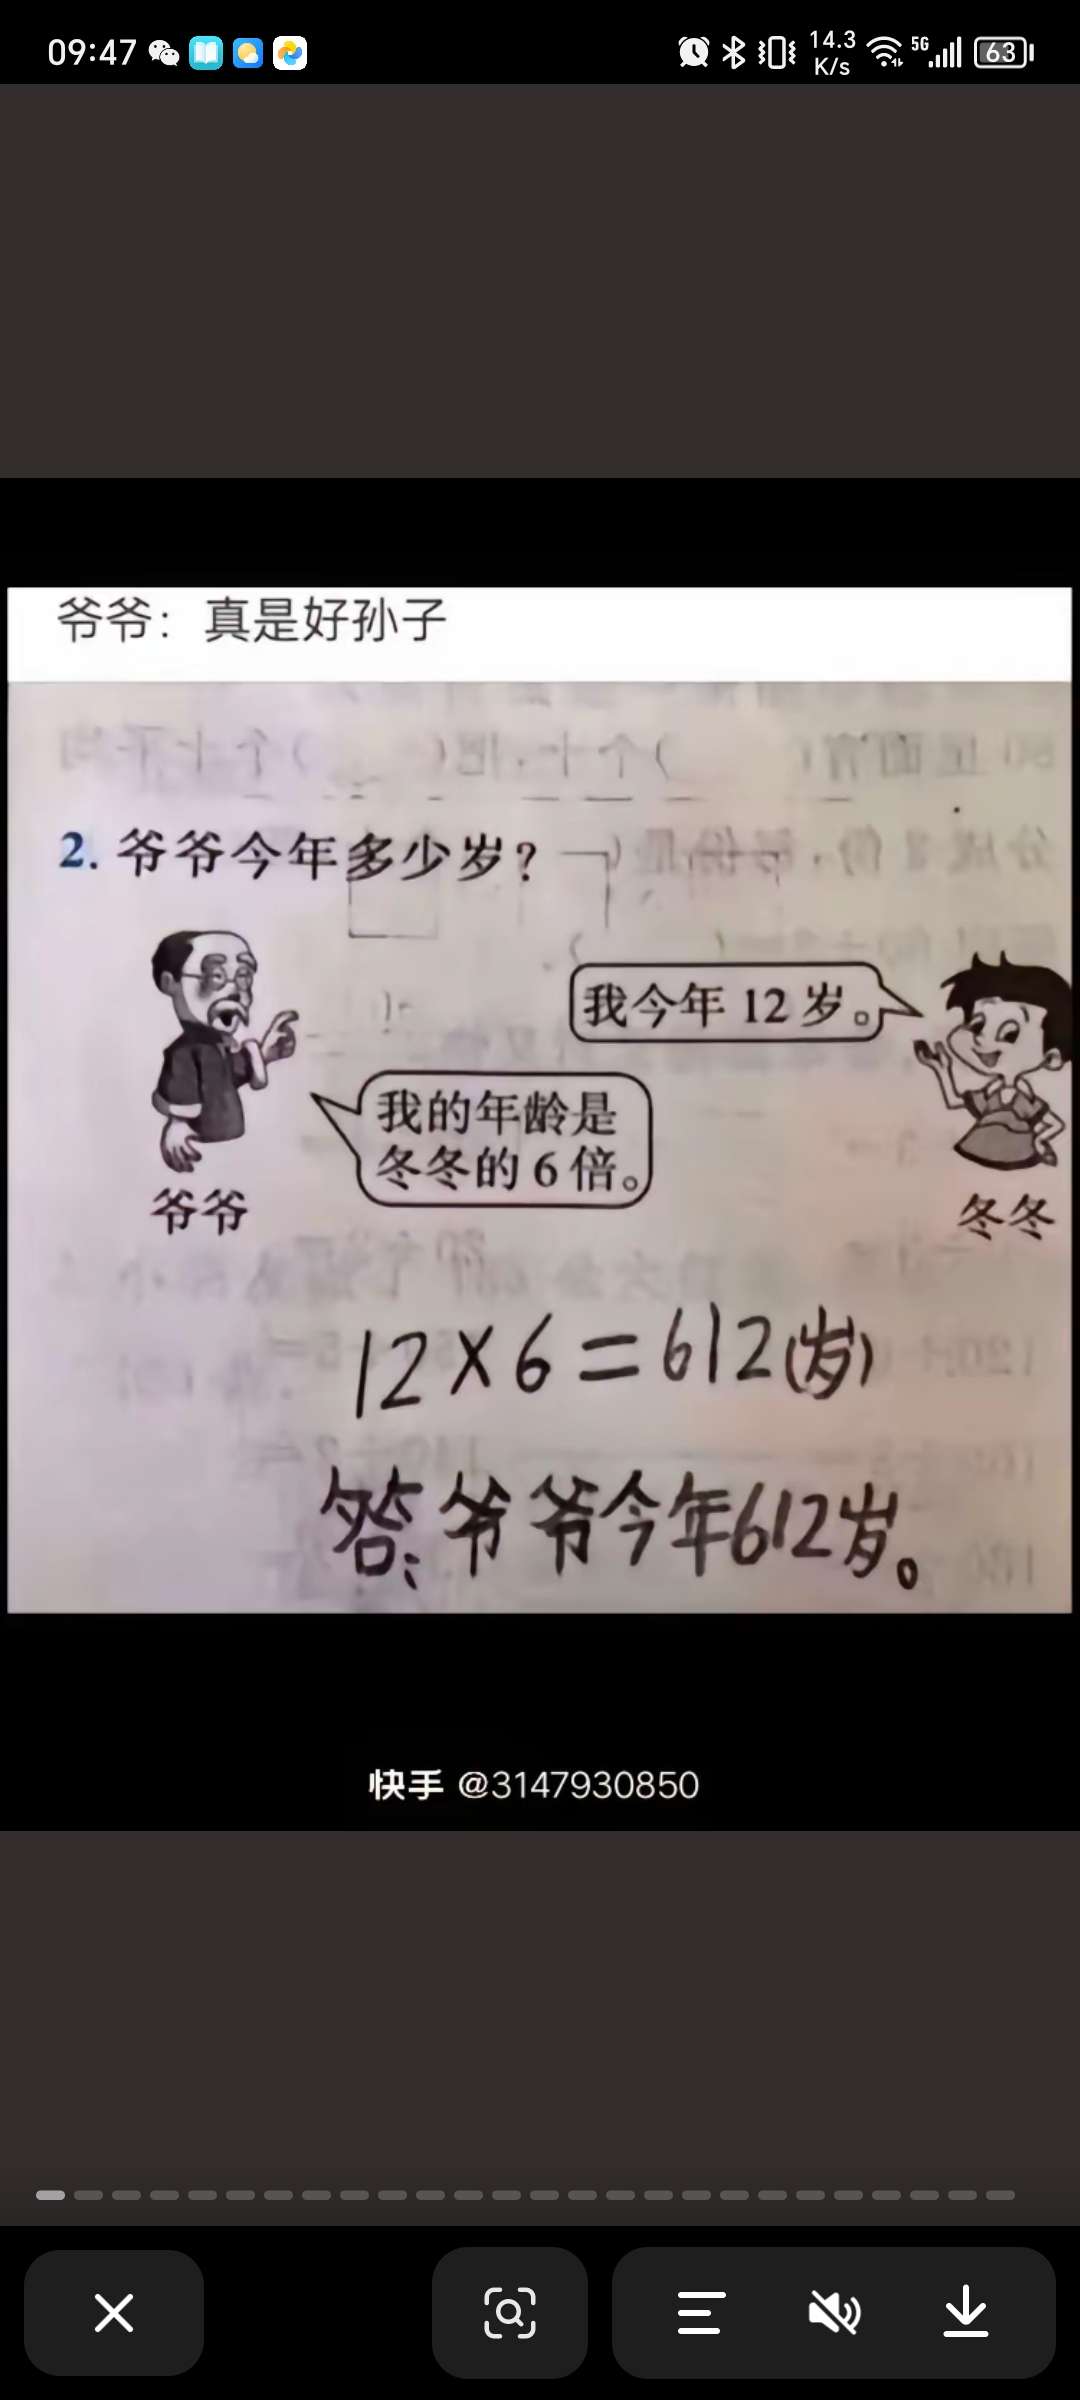 09:47
14.3 K/s
5G
63
爷爷：真是好孙子
2. 爷爷今年多少岁？
我今年 12 岁。
我的年龄是
冬冬的 6 倍。
爷爷
冬冬
12×6=612(岁)
答：爷爷今年612岁。
快手 @3147930850